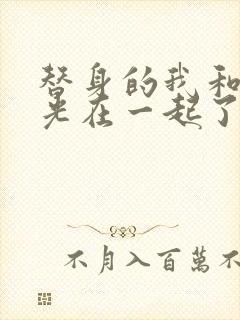 替身的我和
光在一起了
不月入百萬不